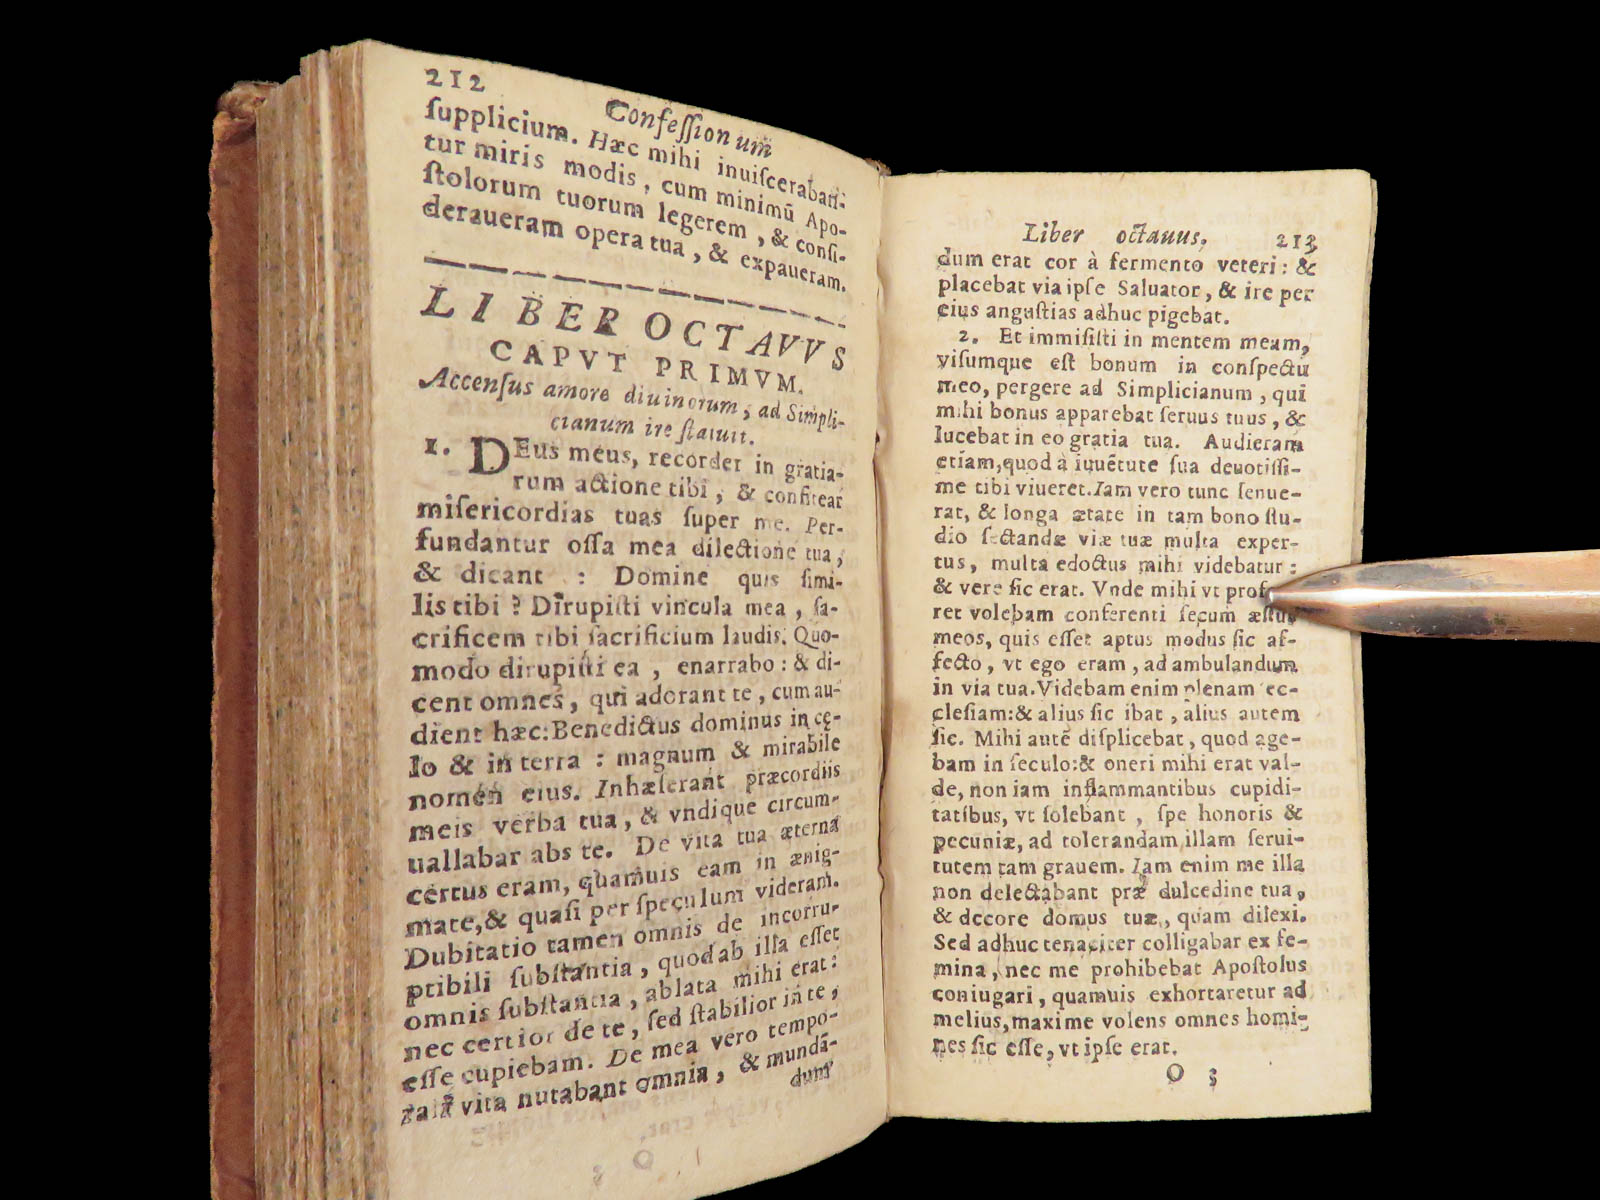 212
Confessionum
ſupplicium. Hæc mihi inuiſceraban-
tur miris modis, cum minimū Apo-
ſtolorum tuorum legerem, & conſi-
deraueram opera tua, & expaueram.
LIBER OCTAVVS
CAPVT PRIMVM.
Accenſus amore diuinorum, ad Simpli-
cianum ire ſtatuit.
1. DEus meus, recorder in gratia-
rum actione tibi, & confitear
miſericordias tuas ſuper me. Per-
fundantur oſſa mea dilectione tua,
& dicant : Domine quis ſimi-
lis tibi ? Dirupiſti vincula mea, ſa-
crificem tibi ſacrificium laudis. Quo-
modo dirupiſti ea, enarrabo: & di-
cent omnes, qui adorant te, cum au-
dient hæc: Benedictus dominus in cę-
lo & in terra : magnum & mirabile
nomen eius. Inhæſerant præcordiis
meis verba tua, & vndique circum-
uallabar abs te. De vita tua æterna
certus eram, quamuis eam in ænig-
mate, & quaſi per ſpeculum videram.
Dubitatio tamen omnis de incorru-
ptibili ſubſtantia, quod ab illa eſſet
omnis ſubſtantia, ablata mihi erat:
nec certior de te, ſed ſtabilior in te,
eſſe cupiebam. De mea vero tempo-
rali vita nutabant omnia, & mundā-
dum
Liber octauus. 213
dum erat cor à fermento veteri: &
placebat via ipſe Saluator, & ire per
eius anguſtias adhuc pigebat.
2. Et immiſiſti in mentem meam,
viſumque eſt bonum in conſpectu
meo, pergere ad Simplicianum, qui
mihi bonus apparebat ſeruus tuus, &
lucebat in eo gratia tua. Audieram
etiam, quod à iuuētute ſua deuotiſſi-
me tibi viueret. Iam vero tunc ſenue-
rat, & longa ætate in tam bono ſtu-
dio ſectandæ viæ tuæ multa exper-
tus, multa edoctus mihi videbatur:
& vere ſic erat. Vnde mihi vt profer-
ret volebam conferenti ſecum æſtus
meos, quis eſſet aptus modus ſic af-
fecto, vt ego eram, ad ambulandum
in via tua. Videbam enim plenam ec-
cleſiam: & alius ſic ibat, alius autem
ſic. Mihi autē diſplicebat, quod age-
bam in ſeculo: & oneri mihi erat val-
de, non iam inflammantibus cupidi-
tatibus, vt ſolebant, ſpe honoris &
pecuniæ, ad tolerandam illam ſerui-
tutem tam grauem. Iam enim me illa
non delectabant præ dulcedine tua,
& decore domus tuæ, quam dilexi.
Sed adhuc tenaciter colligabar ex fe-
mina, nec me prohibebat Apoſtolus
coniugari, quamuis exhortaretur ad
melius, maxime volens omnes homi-
nes ſic eſſe, vt ipſe erat.
O 3